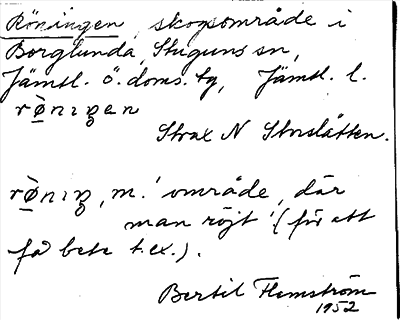 Röningen, skogsområde i
Borglunda, Stuguns sn,
Jämtl. ö. doms. tg, Jämtl. l.
rø̀nıŋen
Strax N Storslåtten.
rø̀nıŋ, m. 'område, där
man röjt' (för att
få bete t.ex.).
Bertil Flemström
1952